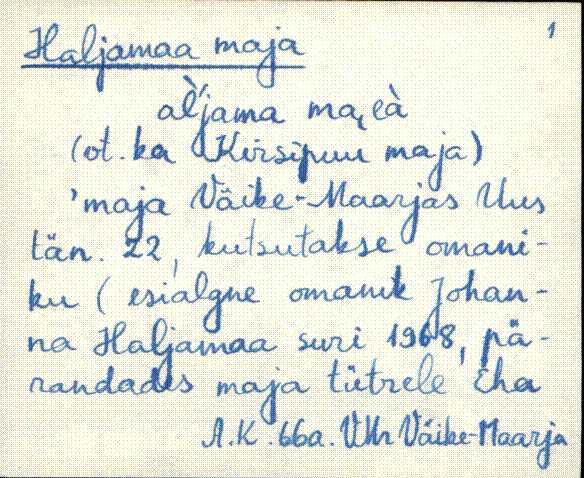 1
Haljamaa maja
al̀'jama ma͕eà
(ot. ka Kirsipuu maja)
'maja Väike-Maarjas Uus
tän. 22, kutsutakse omani-
ku (esialgne omanik Johan-
na Haljamaa suri 1968, pä-
randades maja tütrele Eha
A.K. 66a. VMr Väike-Maarja